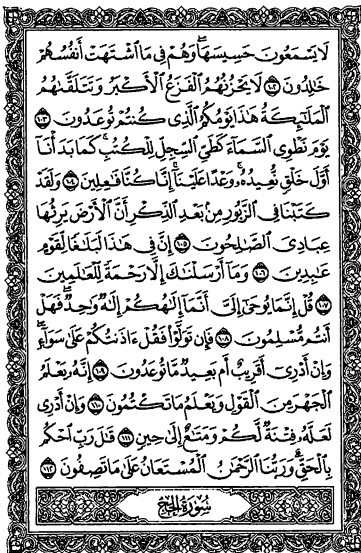 لَا يَسْمَعُونَ حَسِيسَهَا ۖ وَهُمْ فِي مَا ٱشْتَهَتْ أَنفُسُهُمْ
خَٰلِدُونَ ١٠٢ لَا يَحْزُنُهُمُ ٱلْفَزَعُ ٱلْأَكْبَرُ وَتَتَلَقَّىٰهُمُ
ٱلْمَلَٰٓئِكَةُ هَٰذَا يَوْمُكُمُ ٱلَّذِي كُنتُمْ تُوعَدُونَ ١٠٣
يَوْمَ نَطْوِي ٱلسَّمَآءَ كَطَيِّ ٱلسِّجِلِّ لِلْكُتُبِ ۚ كَمَا بَدَأْنَآ
أَوَّلَ خَلْقٍ نُّعِيدُهُۥ ۚ وَعْدًا عَلَيْنَآ ۚ إِنَّا كُنَّا فَٰعِلِينَ ١٠٤ وَلَقَدْ
كَتَبْنَا فِي ٱلزَّبُورِ مِنۢ بَعْدِ ٱلذِّكْرِ أَنَّ ٱلْأَرْضَ يَرِثُهَا
عِبَادِيَ ٱلصَّٰلِحُونَ ١٠٥ إِنَّ فِي هَٰذَا لَبَلَٰغًا لِّقَوْمٍ
عَٰبِدِينَ ١٠٦ وَمَآ أَرْسَلْنَٰكَ إِلَّا رَحْمَةً لِّلْعَٰلَمِينَ
١٠٧ قُلْ إِنَّمَا يُوحَىٰٓ إِلَيَّ أَنَّمَآ إِلَٰهُكُمْ إِلَٰهٌ وَٰحِدٌ ۖ فَهَلْ
أَنتُم مُّسْلِمُونَ ١٠٨ فَإِن تَوَلَّوْا۟ فَقُلْ ءَاذَنتُكُمْ عَلَىٰ سَوَآءٍ ۖ
وَإِنْ أَدْرِيٓ أَقَرِيبٌ أَم بَعِيدٌ مَّا تُوعَدُونَ ١٠٩ إِنَّهُۥ يَعْلَمُ
ٱلْجَهْرَ مِنَ ٱلْقَوْلِ وَيَعْلَمُ مَا تَكْتُمُونَ ١١٠ وَإِنْ أَدْرِي
لَعَلَّهُۥ فِتْنَةٌ لَّكُمْ وَمَتَٰعٌ إِلَىٰ حِينٍ ١١١ قَٰلَ رَبِّ ٱحْكُم
بِٱلْحَقِّ ۗ وَرَبُّنَا ٱلرَّحْمَٰنُ ٱلْمُسْتَعَانُ عَلَىٰ مَا تَصِفُونَ ١١٢
سُورَةُ الحَجّ